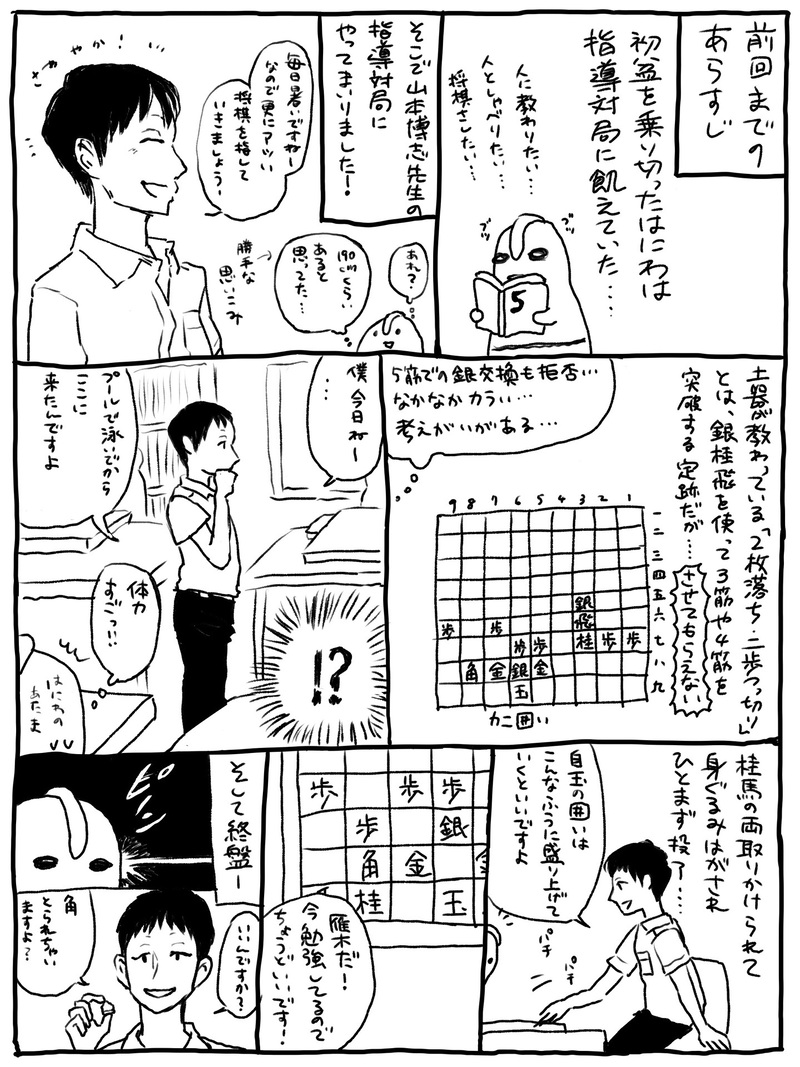 前回までの
あらすじ
初盆を乗り切ったはにわは
指導対局に飢えていた・・・・
人に教わりたい・・・
人としゃべりたい・・・
将棋さしたい・・・
ブツ
ブツ
5
そこで山本博志先生の
指導対局に
やってまいりました！
さわやか！
毎日暑いですねー
なので更にアツい
将棋を指して
いきましょう！
あれ？
190cmくらい
あると
思ってた…
勝手な
思いこみ
土器が教わっている「2枚落ち・二歩つっ切り」
とは、銀桂飛を使って3筋や4筋を
突破する定跡だが・・・
させてもらえない
5筋での銀交換も拒否・・・
なかなかカラい・・・
考えがいがある・・・
9 8 7 6 5 4 3 2 1
一二三四五六七八九
銀
飛
歩 歩 桂 歩 歩
歩 歩
角 金 銀 金
玉
カニ囲い
僕今日ねー
・・
プールで泳いでから
ここに
来たんですよ
!?
体力
すごっ!!
はにわの
あたま
桂馬の両取りかけられて
身ぐるみはがされ
ひとまず投了・・・・
自玉の囲いは
こんなふうに盛り上げて
いくといいですよ
パチ
パチ
パチ
歩 歩 歩
歩 銀
角 金 金
桂 玉
雁木だ！
今勉強してるので
ちょうどいいです！
そして終盤ー
ピーン
いいんですか？
角
とられちゃい
ますよ？